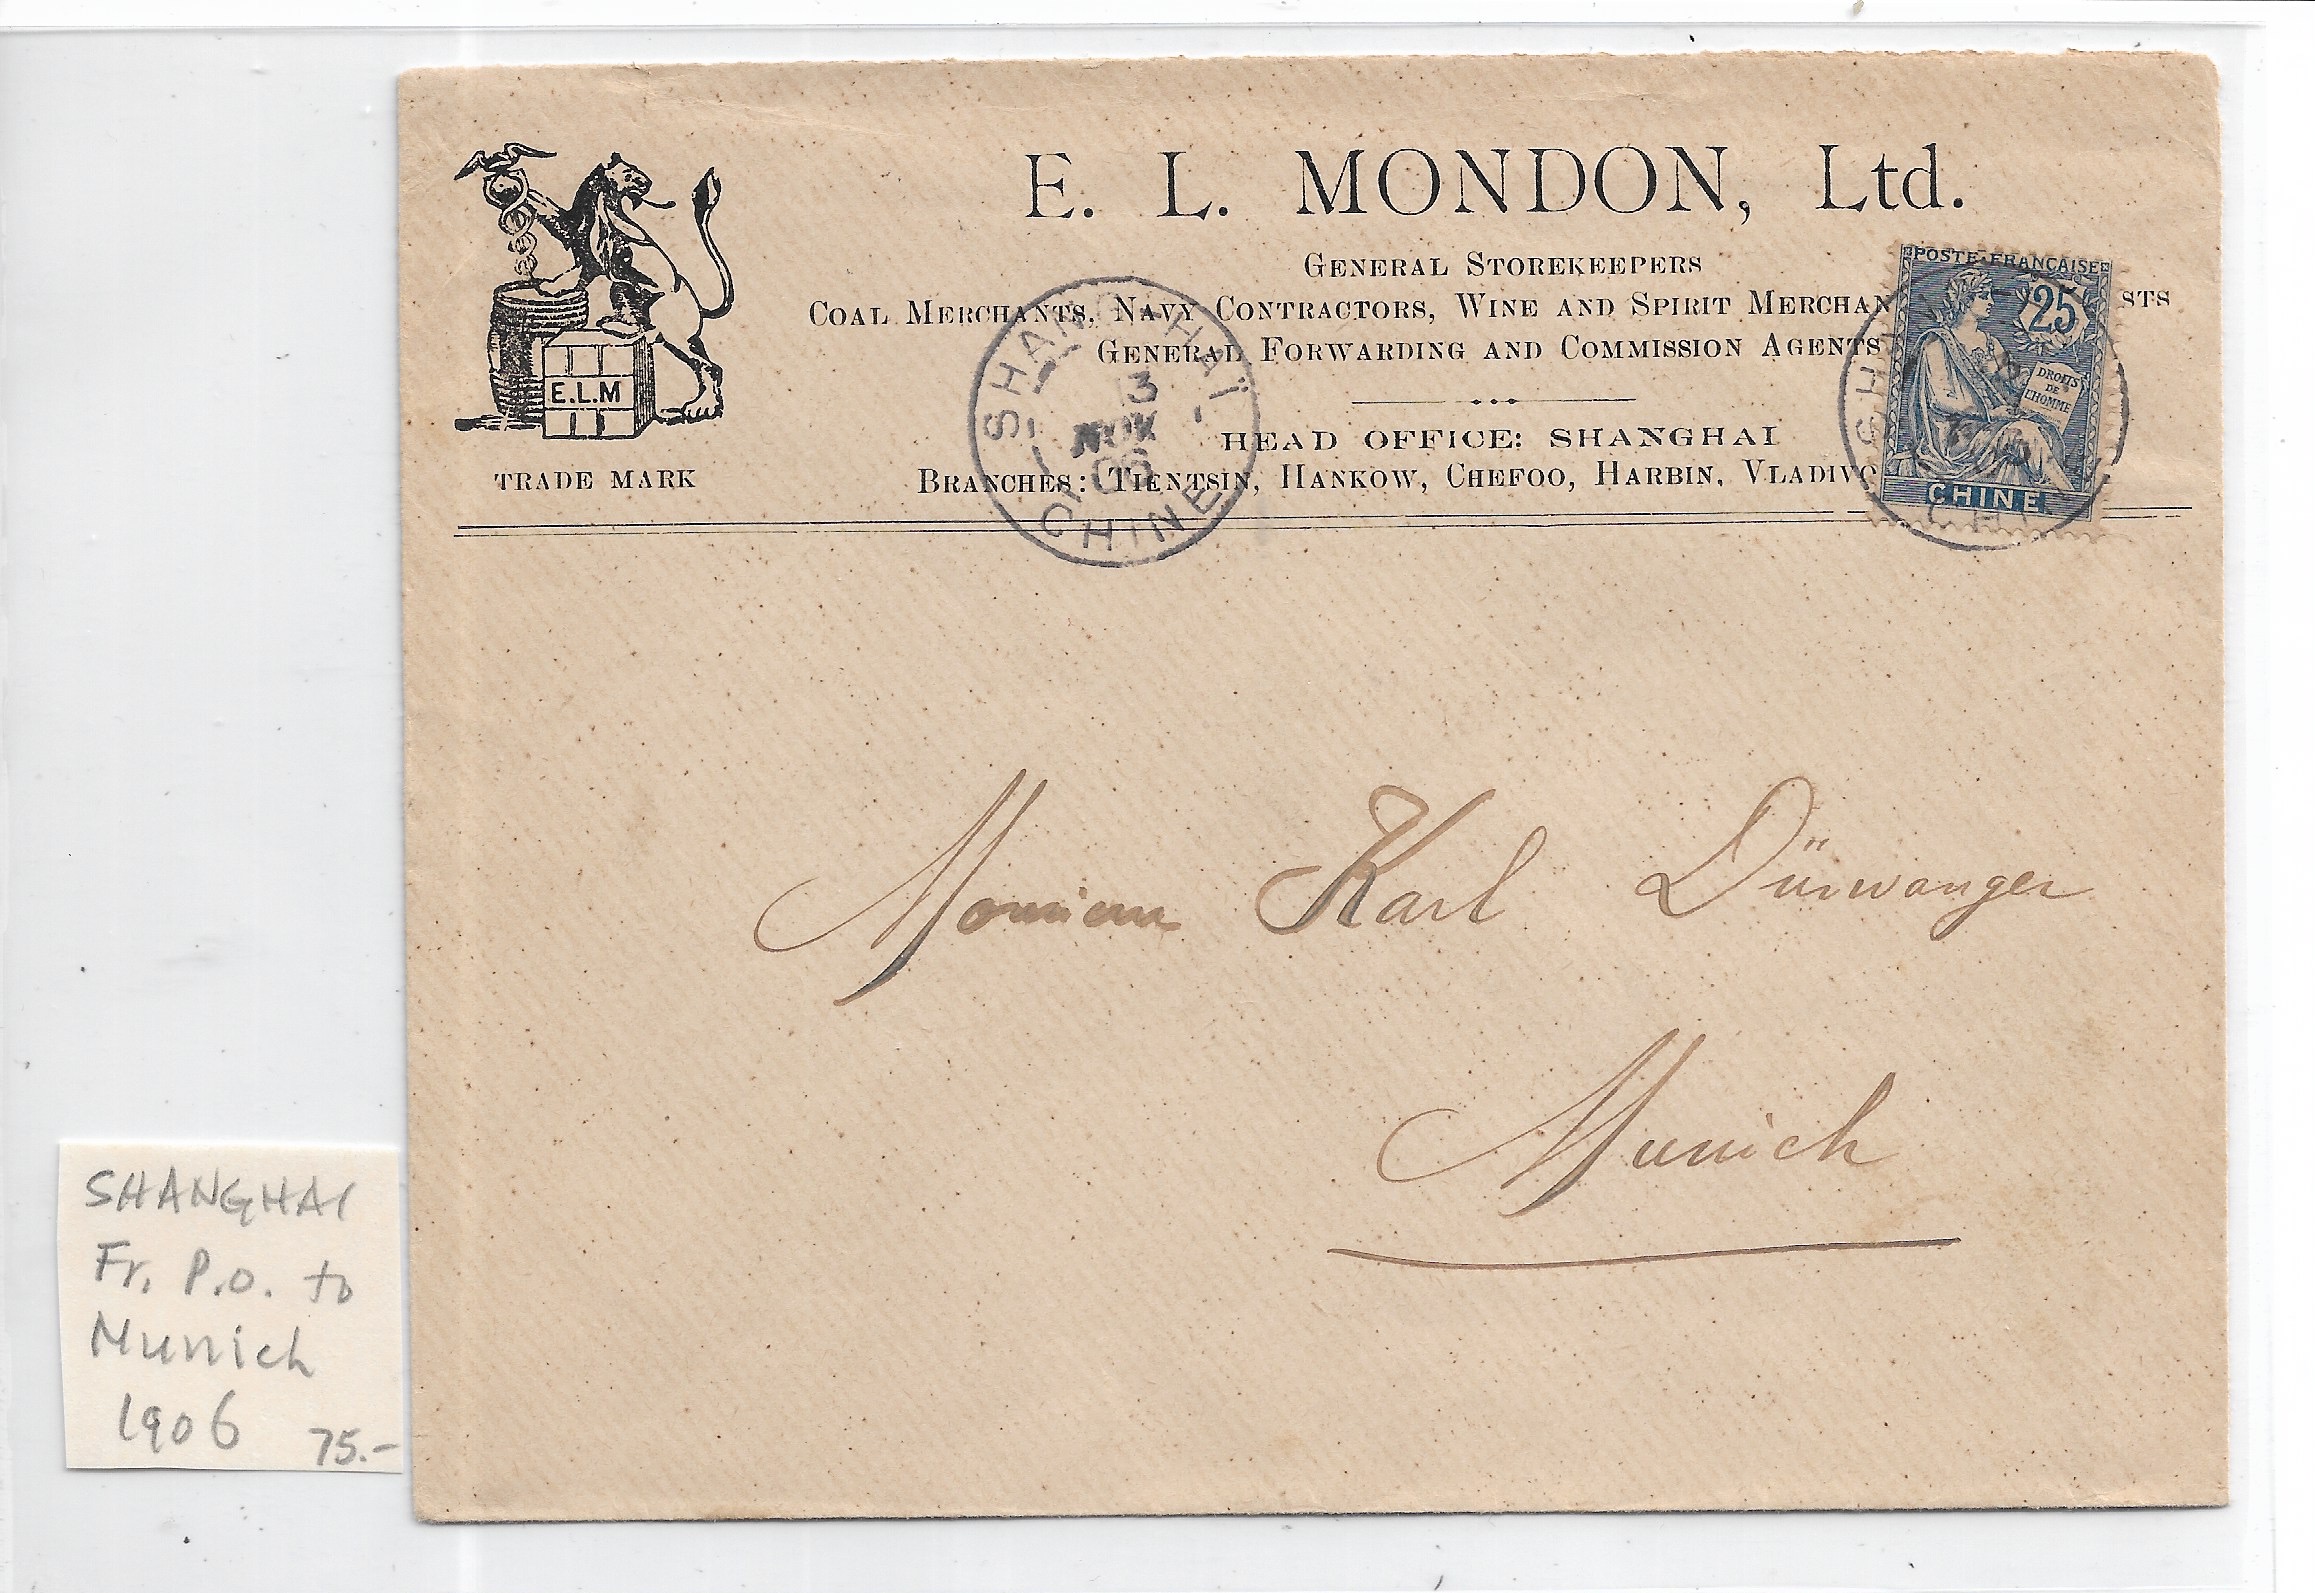 E. L. MONDON, Ltd.
GENERAL STOREKEEPERS
COAL MERCHANTS, NAVY CONTRACTORS, WINE AND SPIRIT MERCHAN STS
GENERAL FORWARDING AND COMMISSION AGENTS
HEAD OFFICE: SHANGHAI
BRANCHES: TIENTSIN, HANKOW, CHEFOO, HARBIN, VLADIVO
E.L.M
TRADE MARK
SHANG-HAÏ
13
NOV
06
CHINE
POSTE FRANÇAISE
25
DROITS
DE
L'HOMME
CHINE
Monsieur Karl Dürwanger
Munich
SHANGHAI
Fr. P.O. to
Munich
1906 75.-